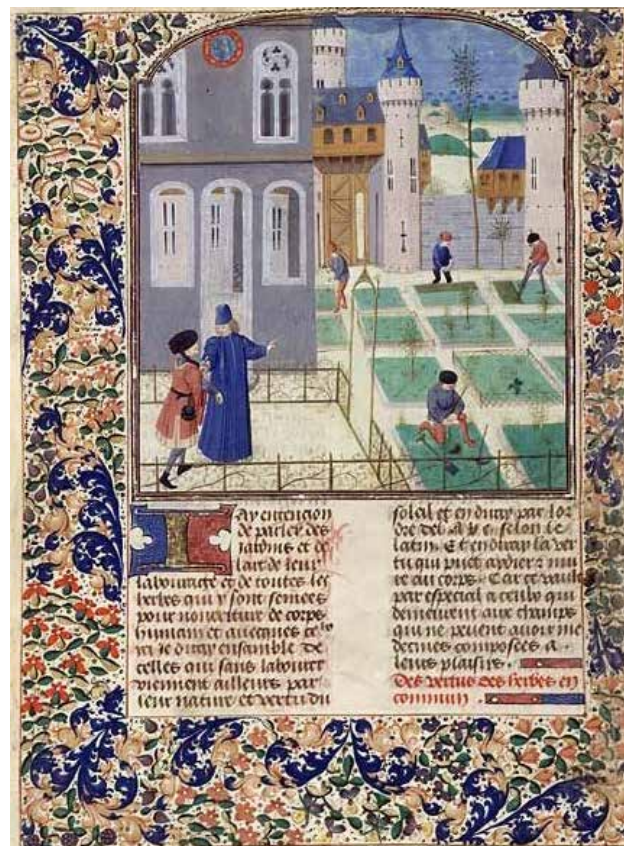 Iay entencion
de parler des
iardins et de
lart de leur
labourage et de toutes les
herbes qui y sont semees
pour nourreture de corps
humain et auecques
ie diray ensamble de
celles qui sans labourer
viennent ailleurs par
leur nature et vertu du
soleil et en diray par lor
dre del a b c selon le
latin. Et en diray la ver
tu qui puet aydier z nui
re au corps. Car ce vault
par especial a ceulx qui
demeurent aux champs
qui ne peuent auoir me
decines composees a
leurs plaisirs.
Des vertus des herbes en
commun